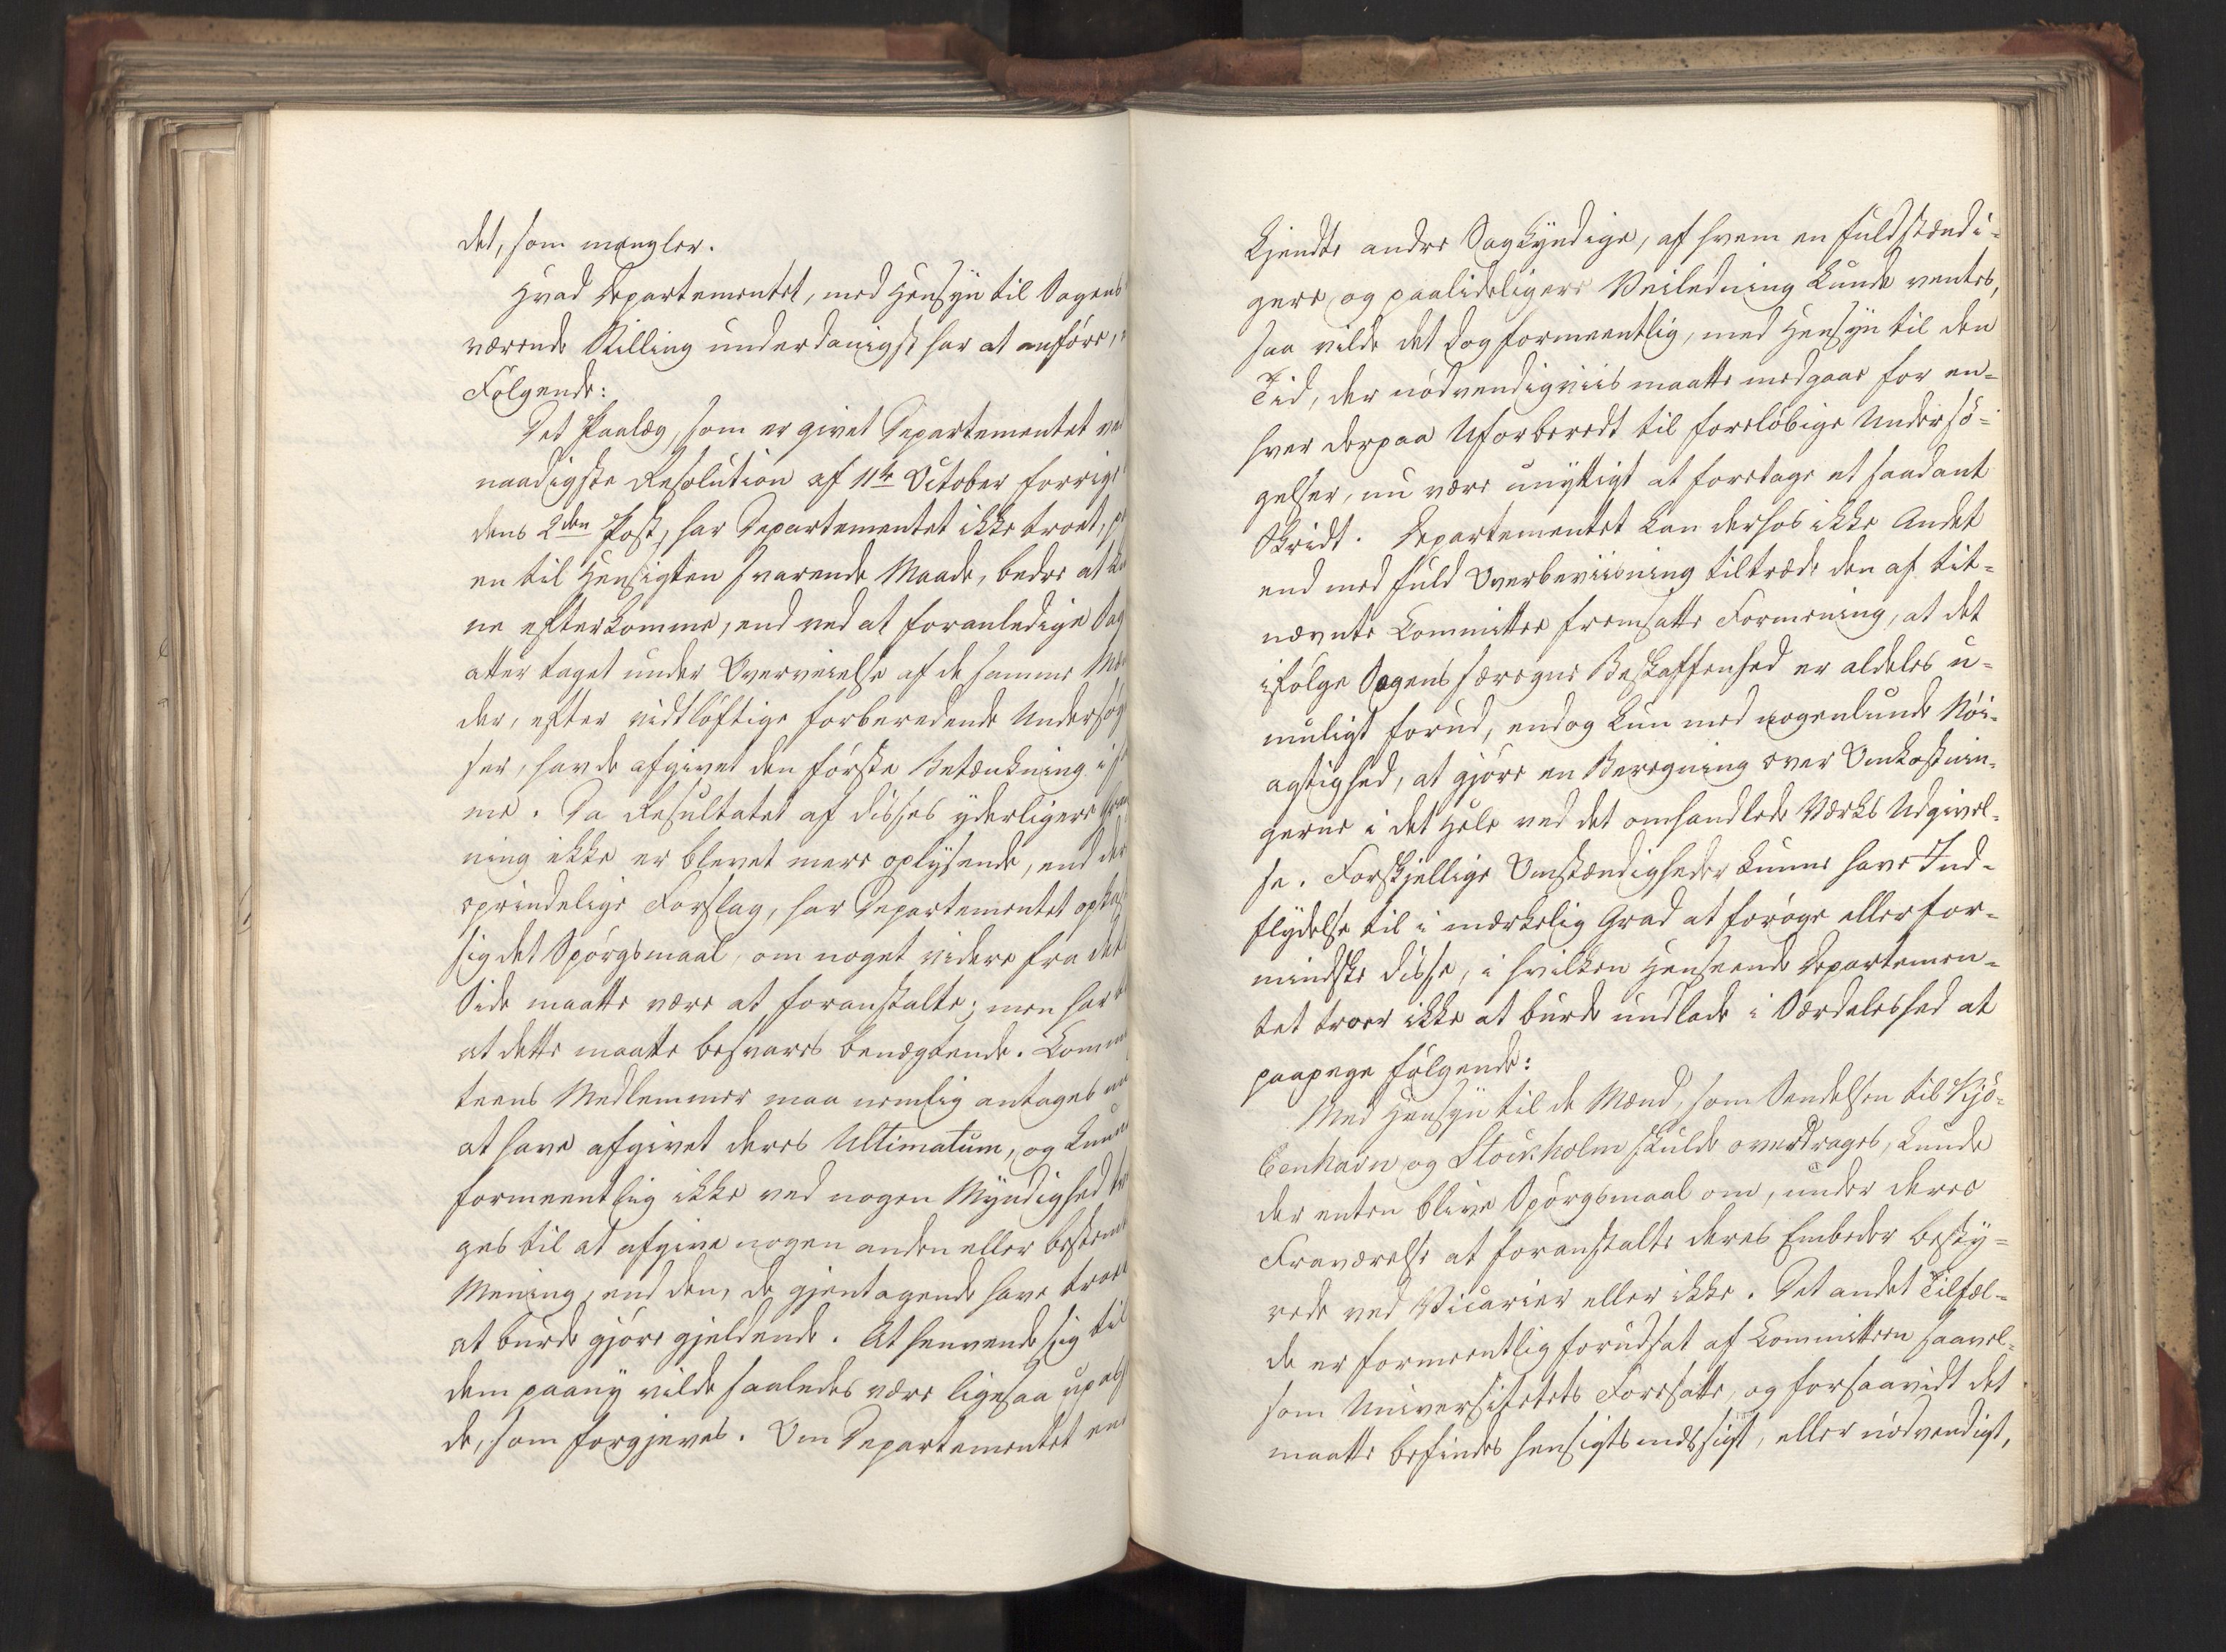 det, som mangler.
Hvad Departementet, med Hensyn til Sagens
værende Stilling underdanigst har at anføre,
Følgende:
Det Paalæg, som er givet Departementet ved
naadigste Resolution af 11te October forrige
dens 2den Post, har Departementet ikke troet, paa
en til Hensigten svarende Maade, bedre at
ne efterkomme, end ved at foranledige Sag
atter taget under Overveielse af de samme Mæn
der, efter vidtløftige forberedende Undersøg
ser, havde afgivet den første Betænkning i
me. Da Resultatet af disses yderligere
ning ikke er blevet mere oplysende, end det
oprindelige Forslag, har Departementet opkas
sig det Spørgsmaal, om noget videre fra dets
Side maatte være at foranstalte; men har
at dette maatte besvares benægtende. Comm
teens Medlemmer maa nemlig antages
at have afgivet deres Ultimatum, og kunne
formeentlig ikke ved nogen Myndighed
ges til at afgive nogen anden eller bestemt
Mening, end den, de gjentagende have troet
at burde gjøre gjeldende. At henvende sig til
dem paany vilde saaledes være ligesaa upas
de, som forgjeves. Om Departementet end
kjendte andre Sagkyndige, af hvem en fuldstændi-
gere og paalideligere Veiledning kunde ventes,
saa vilde det dog formeentlig, med Hensyn til den
Tid, der nödvendigviis maatte medgaae for en-
hver derpaa Uforberedt til foreløbige Undersö-
gelser, nu være unyttigt at foretage et saadant
Skridt. Departementet kan derhos ikke Andet
end med fuld Overbeviisning tiltræde den af tit-
nævnte Committee fremsatte Formening, at det
ifølge Sagens særegne Beskaffenhed er aldeles u-
muligt forud, endog kun med nogenlunde Nöi-
agtighed, at gjöre en Beregning over Omkostnin-
gerne i det Hele ved det omhandlede Værks Udgivel-
se. Forskjellige Omstændigheder kunne have Ind-
flydelse til i mærkelig Grad at forøge eller for-
mindske disse, i hvilken Henseende Departemen-
tet troer ikke at burde undlade i Særdeleshed at
paapege følgende:
Med Hensyn til de Mænd, som Sendelsen til Kjö-
benhavn og Stockholm skulde overdrages, kunde
der enten blive Spørgsmaal om, under deres
Fraværelse at foranstalte deres Embeder besty-
rede ved Vicarier eller ikke. Det andet Tilfæl-
de er formeentlig forudsat af Committeen saavel-
som Universitetets Foresatte, og forsaavidt det
maatte befindes hensigtsmæssigt, eller nödvendigt,